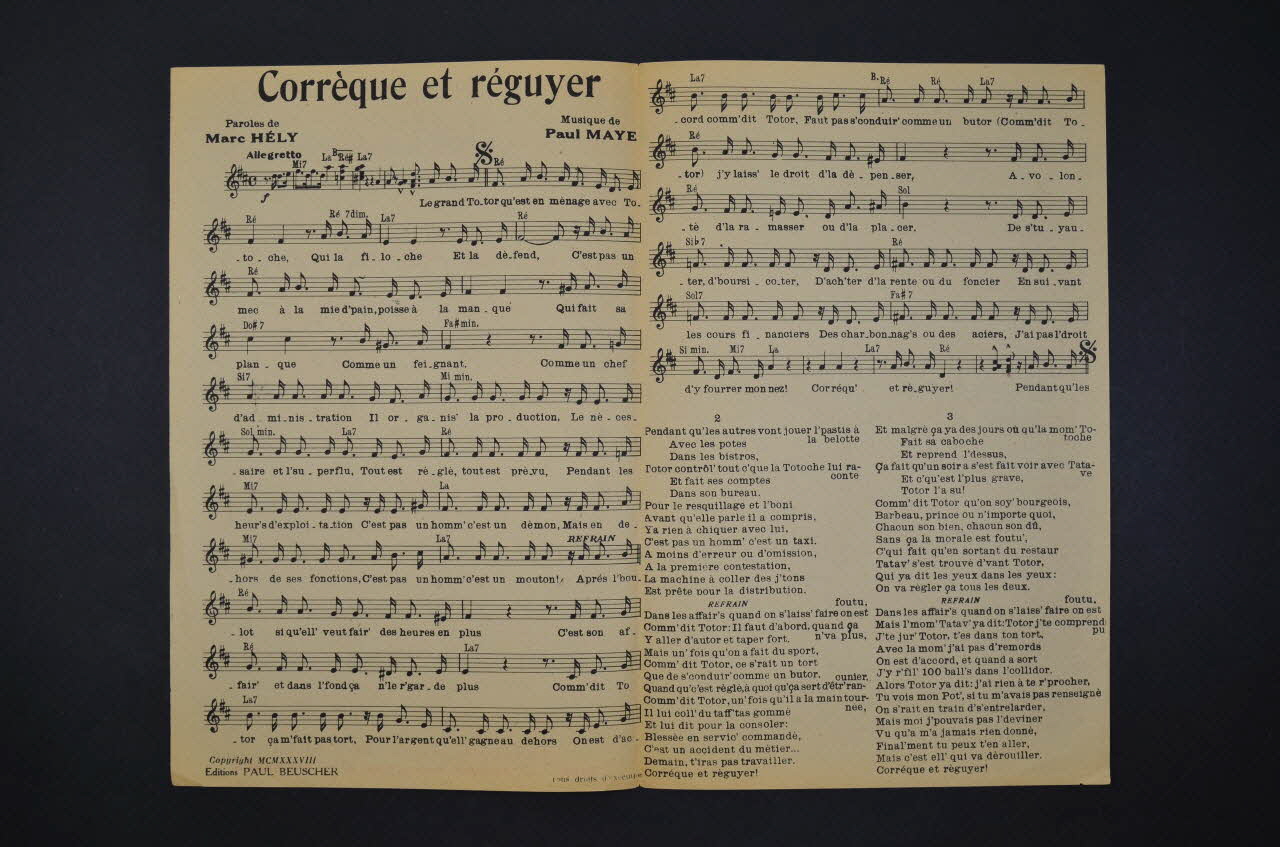 Corrèque et réguyer
Paroles de
Marc HÉLY
Musique de
Paul MAYE
Allegretto
Mi7 La B. Ré# La7 Ré
f
Le grand To_tor qu'est en ménage avec To_
Ré Ré 7dim. La7 Ré
_to_che, Qui la fi_lo_che Et la dé_fend, C'est pas un
Ré
mec à la mie d'pain, poisse à la man_que Qui fait sa
Do#7 Fa#min.
plan_que Comme un fei_gnant, Comme un chef
Si7 Mi min.
d'ad_mi_nis_tration Il or_ga_nis' la pro_duction, Le né_ces_
Sol min. La7 Ré
_saire et l'su_perflu, Tout est ré_glé, tout est pré_vu, Pendant les
Mi7 La
heur's d'exploi_ta_tion C'est pas un homm' c'est un démon, Mais en de_
Mi7 La7 REFRAIN
_hors de ses fonctions, C'est pas un homm' c'est un mouton! Aprés l'bou_
Ré
_lot si qu'ell' veut fair' des heures en plus C'est son af_
Ré La7
_fair' et dans l'fond ça n'le r'gar_de plus Comm' dit To
La7 Ré
_tor ça m'fait pas tort, Pour l'argent qu'ell' gagne au dehors On est d'ac_
Copyright MCMXXXVIII
Editions PAUL BEUSCHER
tous droits d'exécution
La7 B. Ré Ré La7
_cord comm' dit Totor, Faut pas s'conduir' comme un butor (Comm' dit To_
Ré
_tor) j'y laiss' le droit d'la dé_pen_ser, A_vo_lon_
Ré Sol
_té d'la ra_masser ou d'la pla_cer. De s'tu_yau_
Sib7 Ré
_ter, d'boursi_co_ter, D'ach'ter d'la rente ou du foncier En sui_vant
Sol7 Fa#7
les cours fi_nanciers Des char_bon_nag's ou des aciers, J'ai pas l'droit
Si min. Mi7 La La7 Ré
d'y fourrer mon nez! Corréqu' et ré_guyer! Pendant qu'les
2
Pendant qu'les autres vont jouer l'pastis à
la belotte
Avec les potes
Dans les bistros,
Totor contrôl' tout c'que la Totoche lui ra-
conte
Et fait ses comptes
Dans son bureau.
Pour le resquillage et l'boni
Avant qu'elle parle il a compris,
Ya rien à chiquer avec lui,
C'est pas un homm' c'est un taxi.
A moins d'erreur ou d'omission,
A la première contestation,
La machine à coller des j'tons
Est prête pour la distribution.
REFRAIN
foutu,
Dans les affair's quand on s'laiss' faire on est
Comm' dit Totor: Il faut d'abord, quand ça
n'va plus,
Y aller d'autor et taper fort.
Mais un' fois qu'on a fait du sport,
Comm' dit Totor, ce s'rait un tort
Que de s'conduir' comme un butor,
cunier,
Quand qu'c'est réglé, à quoi qu'ça sert d'étr' ran-
Comm' dit Totor, un' fois qu'il a la main tour-
née,
Il lui coll' du taff'tas gommé
Et lui dit pour la consoler:
Blessée en servic' commandé,
C'est un accident du métier...
Demain, t'iras pas travailler.
Corréque et réguyer!
3
Et malgré ça ya des jours où qu'la mom' To-
toche
Fait sa caboche
Et reprend l'dessus,
Ça fait qu'un soir a s'est fait voir avec Tata-
ve
Et c'qu'est l'plus grave,
Totor l'a su!
Comm' dit Totor qu'on soy' bourgeois,
Barbeau, prince ou n'importe quoi,
Chacun son bien, chacun son dû,
Sans ça la morale est foutu',
C'qui fait qu'en sortant du restaur
Tatav' s'est trouvé d'vant Totor,
Qui ya dit les yeux dans les yeux:
On va régler ça tous les deux.
REFRAIN
foutu,
Dans les affair's quand on s'laiss' faire on est
Mais l'mom' Tatav' ya dit: Totor j'te comprend
pu
J'te jur' Totor, t'es dans ton tort,
Avec la mom' j'ai pas d'remords
On est d'accord, et quand a sort
J'y r'fil' 100 ball's dans l'collidor.
Alors Totor ya dit: j'ai rien à te r'procher,
Tu vois mon Pot', si tu m'avais pas renseigné
On s'rait en train d's'entrelarder,
Mais moi j'pouvais pas l'deviner
Vu qu'a m'a jamais rien donné,
Final'ment tu peux t'en aller,
Mais c'est ell' qui va dérouiller.
Corréque et réguyer!